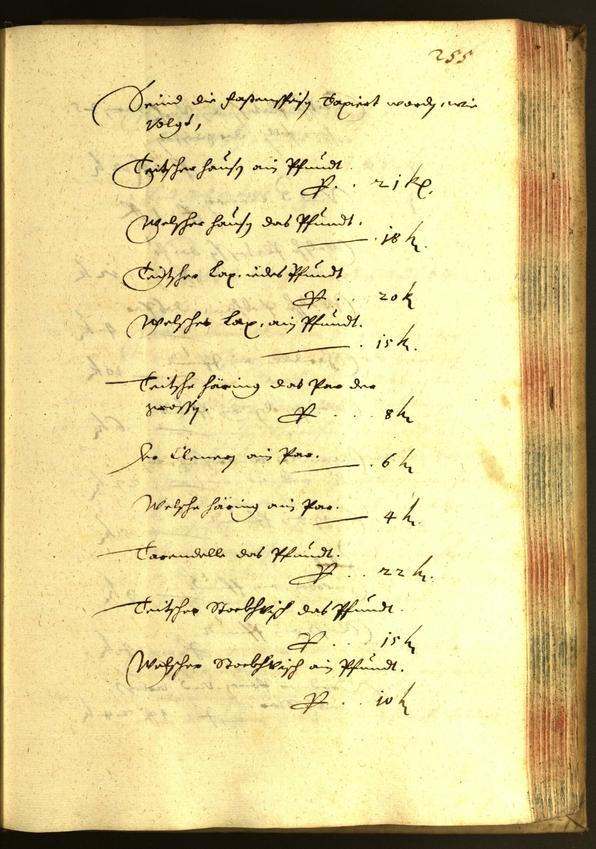 255
Seind die fastenspeisen Taxiert worden, wie
volgt,
Teitscher hausen ain Pfundt.
Pr. . . 21 kr.
Welscher hausen das Pfundt.
. 18 kr.
Teitscher Lax. iedes Pfundt
Pr. . . 20 kr
Welscher Lax. ain Pfundt.
. 15 kr.
Teitsche häring das Par der
grossen. Pr. . . 8 kr
der Clenern ain Par. . 6 kr
Welsche häring ain Par.
4 kr.
Tarendelle das Pfundt.
Pr. . . 22 kr.
Teitscher Stockhvisch das Pfundt.
Pr. . . 15 kr
Welscher Stockhvisch ain Pfundt.
Pr. . . 10 kr